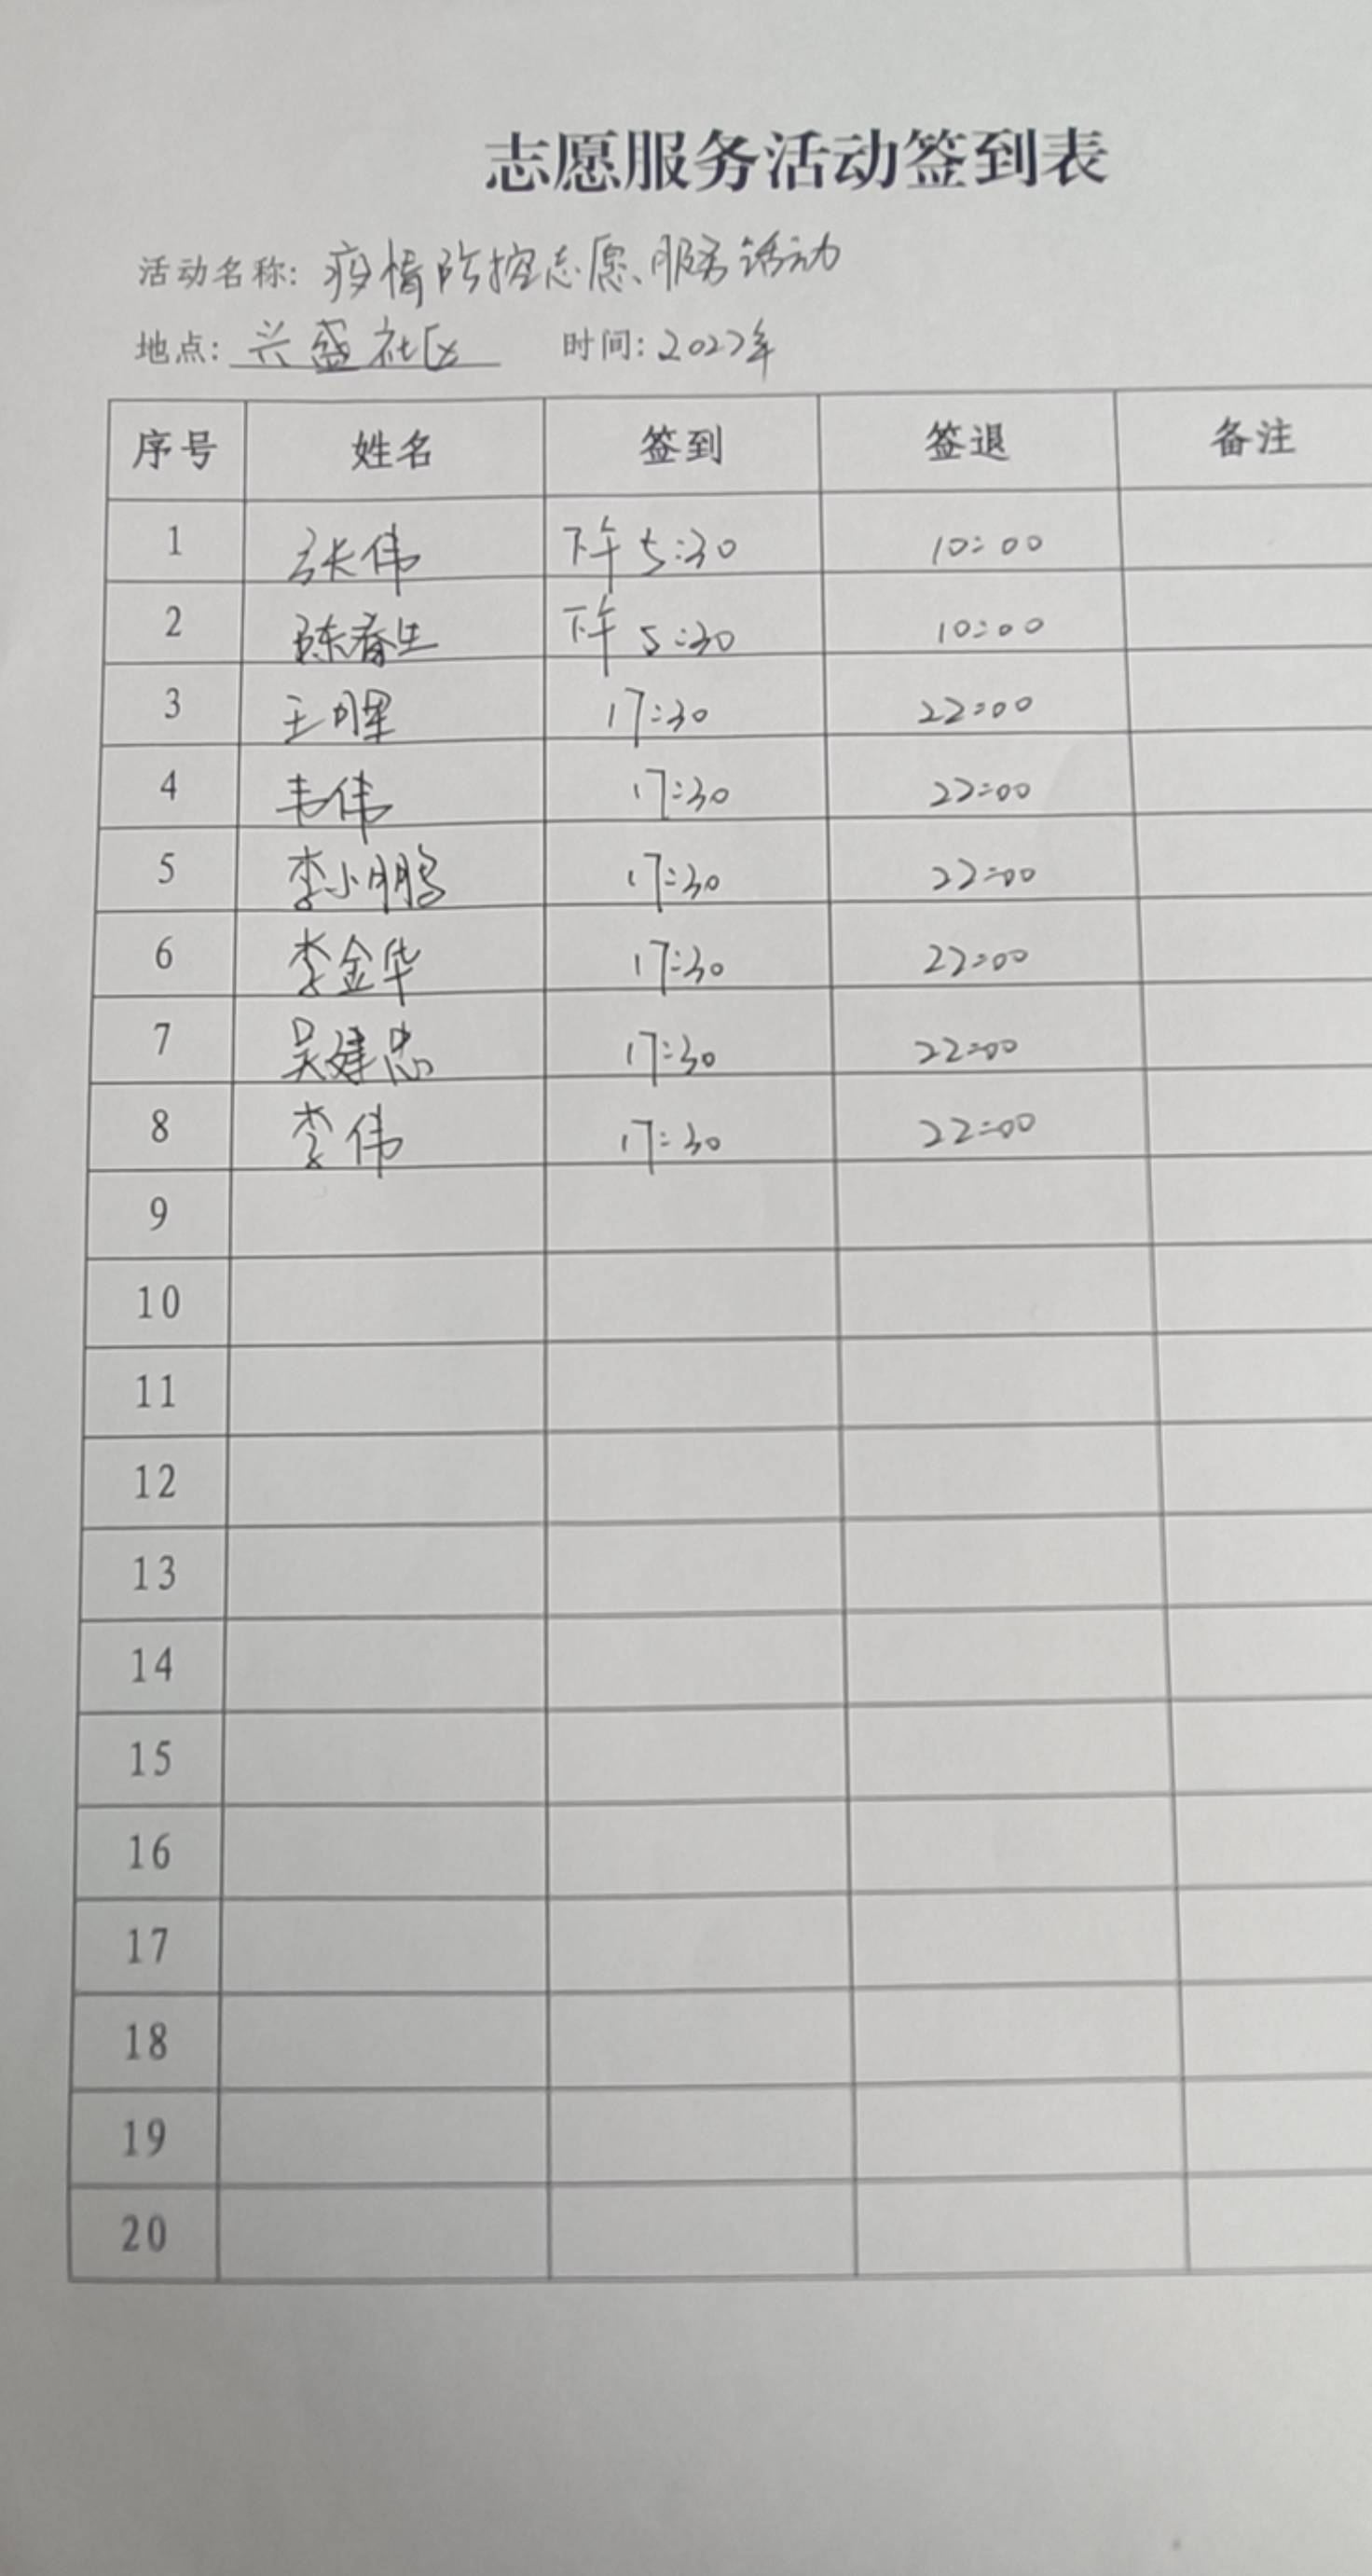 志愿服务活动签到表
活动名称: 疫情防控志愿服务活动
地点: 兴盛社区 时间: 2022年
序号 姓名 签到 签退 备注
1 张伟 下午 5:30 10:00
2 陈春生 下午 5:30 10:00
3 王 17:30 22:00
4 韦伟 17:30 22:00
5 李小鹏 17:30 22:00
6 李金华 17:30 22:00
7 吴建忠 17:30 22:00
8 李伟 17:30 22:00
9
10
11
12
13
14
15
16
17
18
19
20